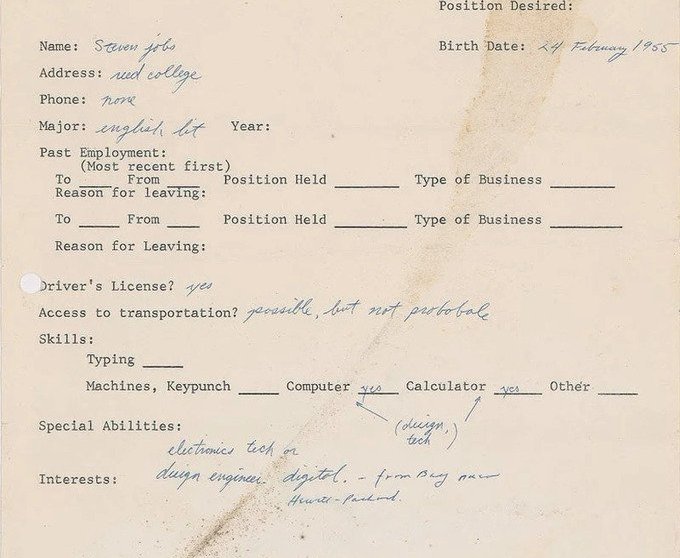 Position Desired:
Name: Steven jobs Birth Date: 24 February 1955
Address: reed college
Phone: none
Major: english lit Year:
Past Employment:
(Most recent first)
To ____ From ____ Position Held ________ Type of Business ________
Reason for leaving:
To ____ From ____ Position Held ________ Type of Business ________
Reason for Leaving:
Driver's License? yes
Access to transportation? possible, but not probobale
Skills:
Typing ____
Machines, Keypunch ____ Computer yes Calculator yes Other ____
(design, tech)
Special Abilities:
electronics tech or
Interests: design engineer digital. - from Bay near
Hewitt-Packard.